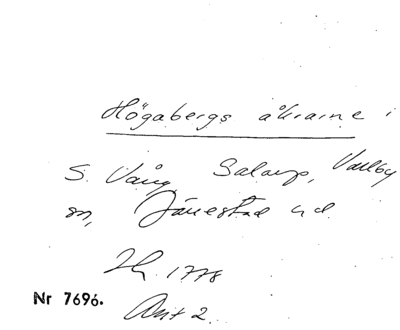 Högabergs åkrarne i
S. Vång, Salarp, Vallby
sn, Järrestad hd.
1778
Nr 7696.
Akt 2